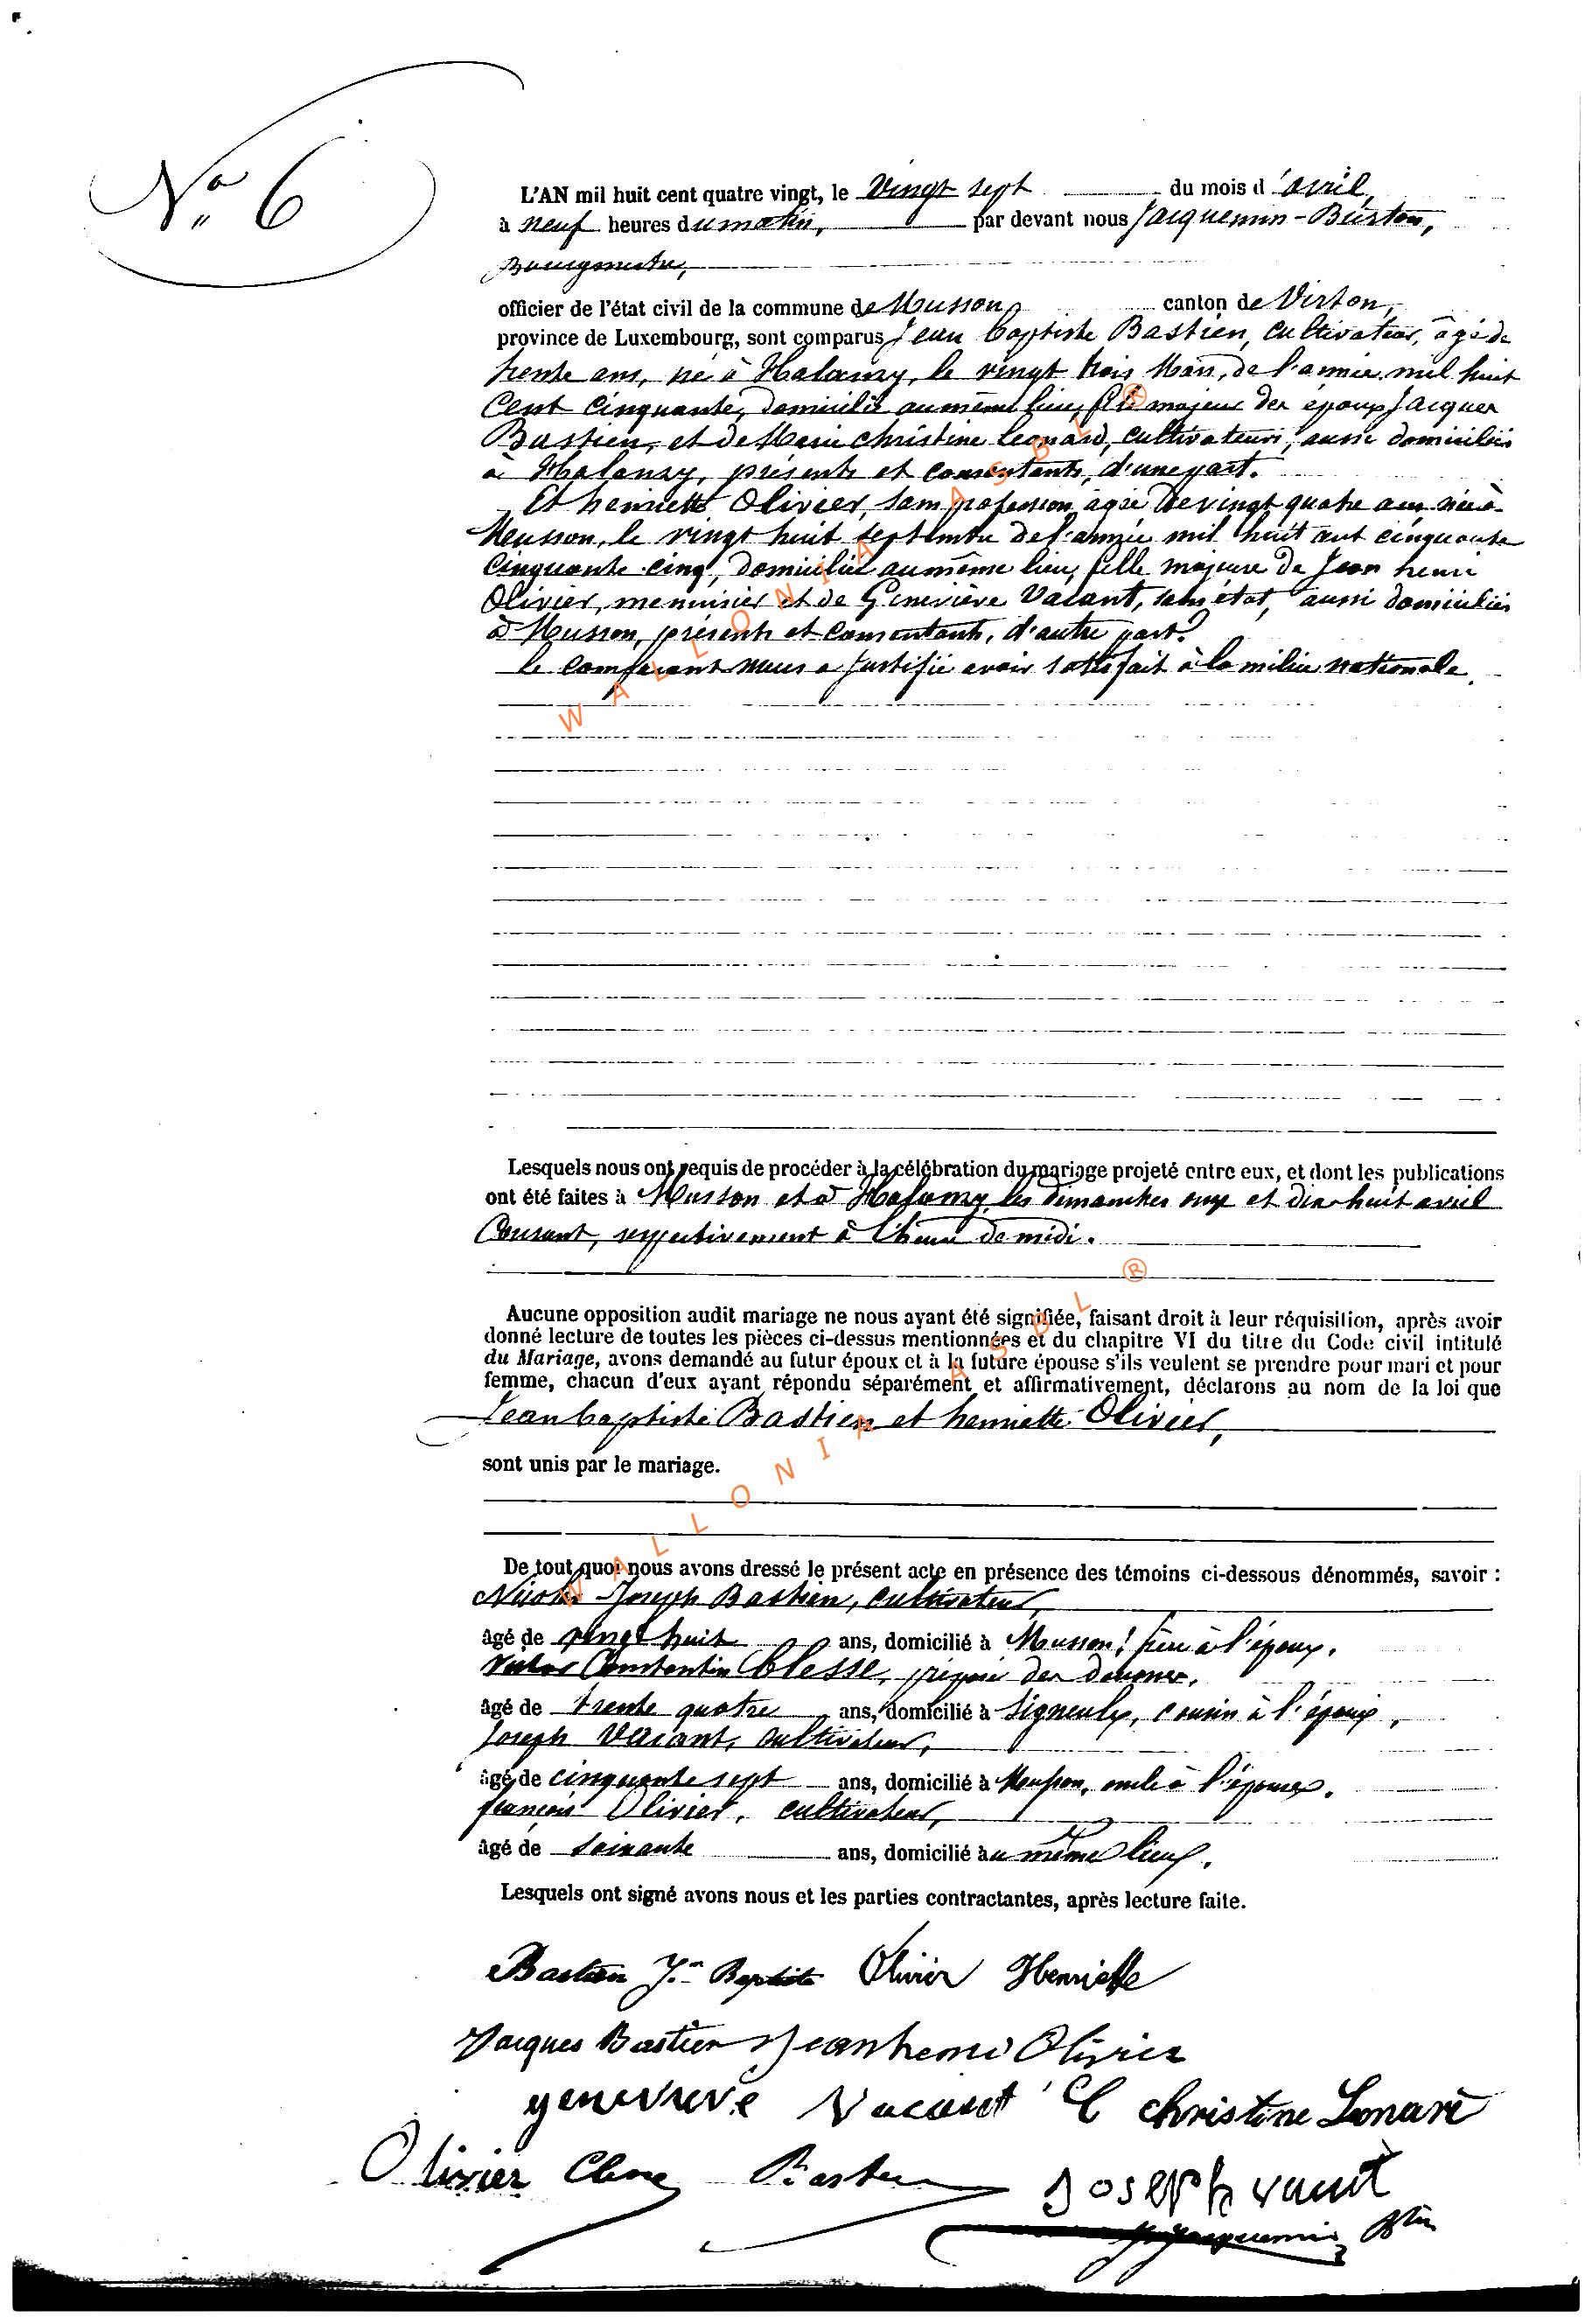 N° 6
L'AN mil huit cent quatre vingt, le Vingt sept du mois d'avril,
à neuf heures du matin, par devant nous Jacquemin-Burton,
Bourgmestre,
officier de l'état civil de la commune de Musson, canton de Virton,
province de Luxembourg, sont comparus Jean baptiste Bastien, cultivateur, âgé de
trente ans, né à Halanzy, le vingt trois Mars, de l'année mil huit
Cent Cinquante, domicilié au même lieu, fils majeur des époux Jacques
Bastien, et de Marie christine Leonard, cultivateurs, aussi domiciliés
à Halanzy, présents et consentants, d'une part.
Et henriette Olivier, sans profession, agée de vingt quatre ans née à
Musson, le vingt huit septembre de l'année mil huit cent cinquante
Cinquante-cinq, domiciliée au même lieu, fille majeure de Jean henri
Olivier, menuisier et de Geneviève Vacant, sans état, aussi domiciliés
à Musson, présents et consentants, d'autre part.
le comparant nous a justifié avoir satisfait à la milice nationale.
Lesquels nous ont requis de procéder à la célébration du mariage projeté entre eux, et dont les publications
ont été faites à Musson et à Halanzy, les dimanches onze et dix-huit avril
Courant, respectivement à l'heure de midi.
Aucune opposition audit mariage ne nous ayant été signifiée, faisant droit à leur réquisition, après avoir
donné lecture de toutes les pièces ci-dessus mentionnées et du chapitre VI du titre du Code civil intitulé
du Mariage, avons demandé au futur époux et à la future épouse s'ils veulent se prendre pour mari et pour
femme, chacun d'eux ayant répondu séparément et affirmativement, déclarons au nom de la loi que
Jean baptiste Bastien et henriette Olivier,
sont unis par le mariage.
De tout quoi nous avons dressé le présent acte en présence des témoins ci-dessous dénommés, savoir :
Nicolas Joseph Bastien, cultivateur,
âgé de vingt huit ans, domicilié à Musson, frère à l'époux.
Victor Constantin Clesse, préposé des douanes,
âgé de trente quatre ans, domicilié à Signeulx, cousin à l'époux,
Joseph Vacant, cultivateur,
âgé de cinquante sept ans, domicilié à Musson, oncle à l'épouse.
françois Olivier, cultivateur,
âgé de soixante ans, domicilié au même lieu.
Lesquels ont signé avons nous et les parties contractantes, après lecture faite.
Bastien Jn Baptiste Olivier Henriette
Jacques Bastien Jean henri Olivier
genevieve Vacant C christine Lonard
Olivier Clesse Bastien Joseph vacant
J Jacquemin Btn
WALLONIA ASBL ®
WALLONIA ASBL ®